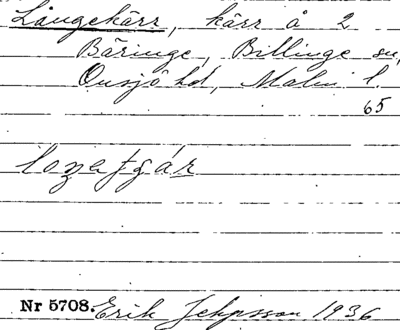 Långekärr, kärr å 2
Bäringe, Billinge sn,
Onsjö hd, Malm. l.
65
Nr 5708. Erik Jeppsson 1936